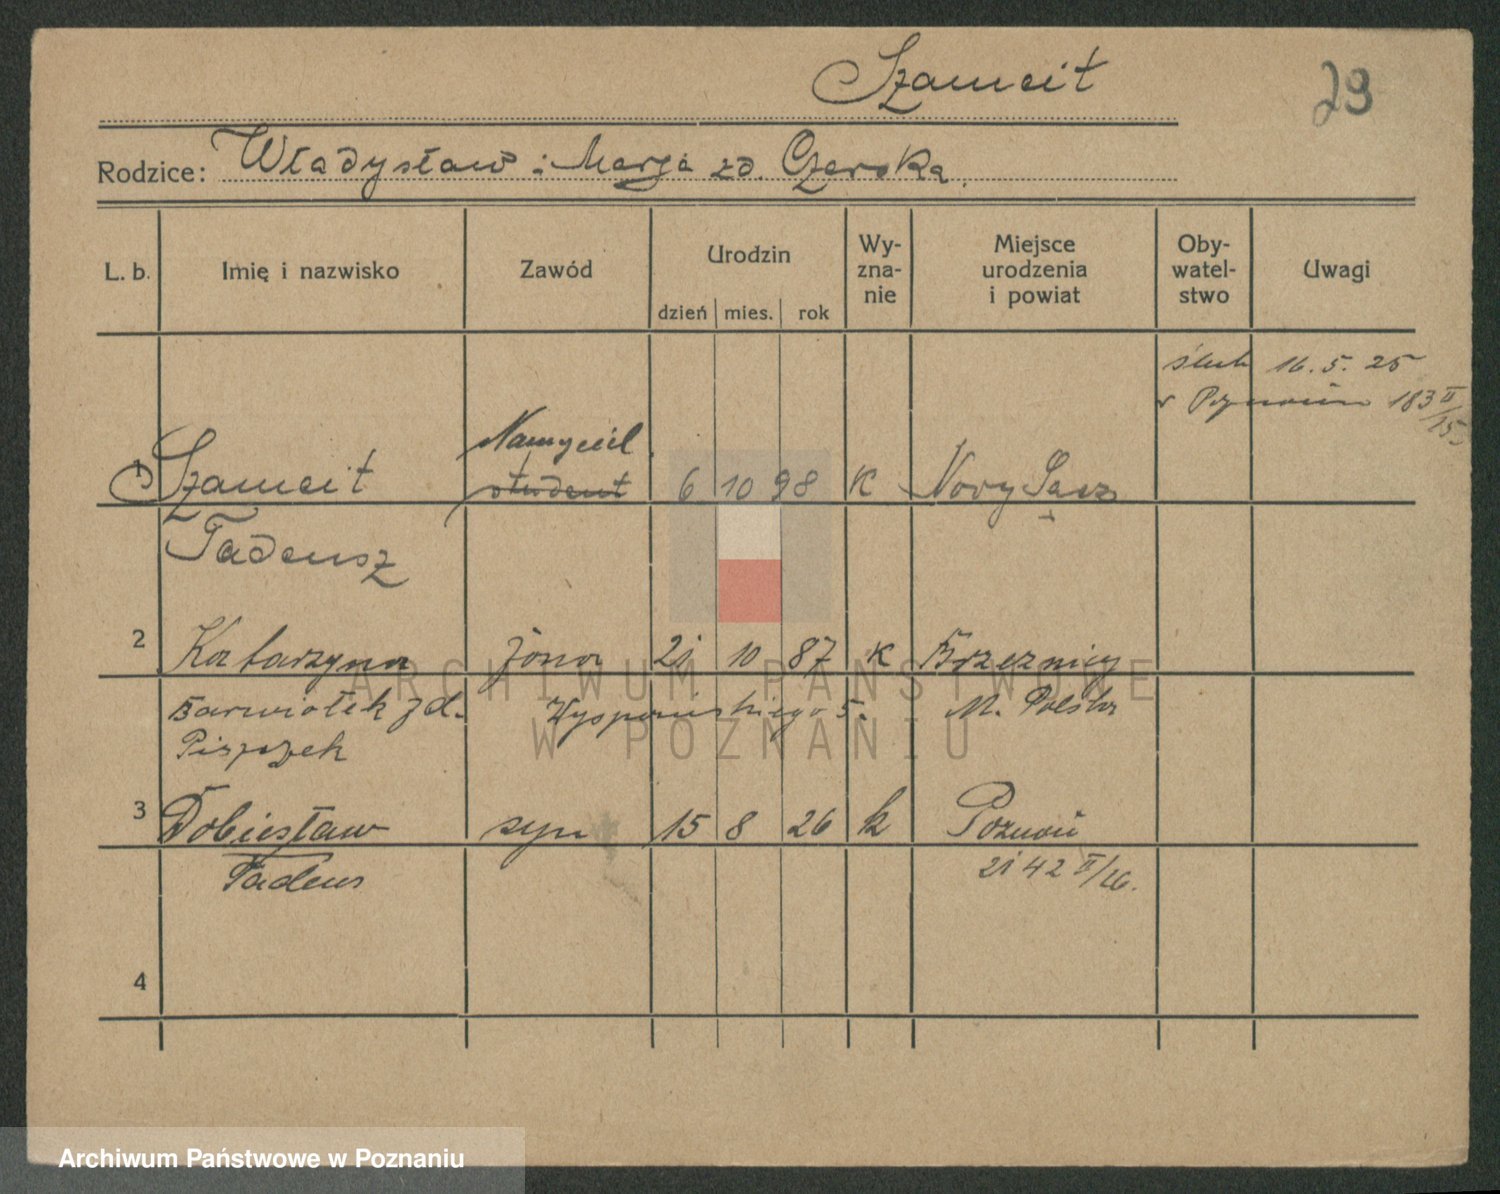 Szameit
29
Rodzice: Władysław i Marja zd. Czerska.
L. b. Imię i nazwisko Zawód Urodzin dzień mies. rok Wy-zna-nie Miejsce urodzenia i powiat Oby-watel-stwo Uwagi
ślub 16. 5. 25
w Poznaniu 183 II/15
1 Szameit Nauczyciel student 6 10 98 K Nowy Sącz
Tadeusz
2 Katarzyna żona 21 10 87 K Brzeznicy
Barwiołek zd. Wyspiańskiego 5. M. Polska
ARCHIWUM PAŃSTWOWE
W POZNANIU
3 Dobiesław syn 15 8 26 k Poznań
Tadeus 2142 II/26.
4
Archiwum Państwowe w Poznaniu